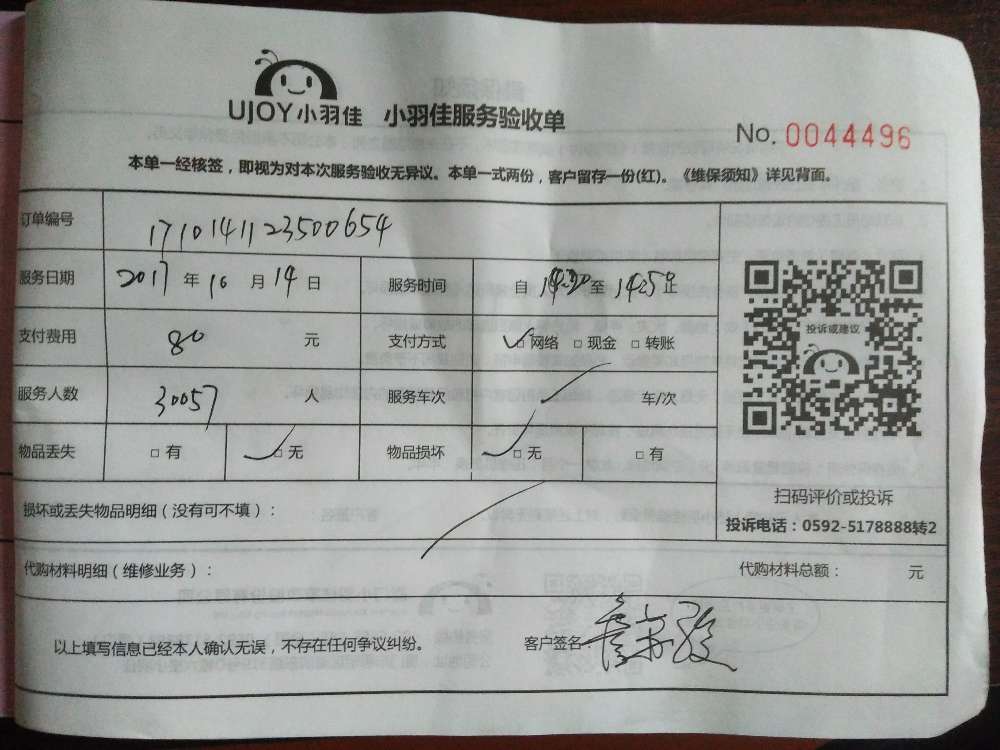 UJOY小羽佳 小羽佳服务验收单
No. 0044496
本单一经核签，即视为对本次服务验收无异议。本单一式两份，客户留存一份(红)。《维保须知》详见背面。
订单编号 1710141123500654
服务日期 2017 年 10 月 14 日 服务时间 自 至
支付费用 80 元 支付方式 □ 网络 □ 现金 □ 转账
服务人数 30057 人 服务车次 车/次
物品丢失 □ 有 □ 无 物品损坏 □ 无 □ 有
投诉或建议
扫码评价或投诉
投诉电话：0592-5178888转2
损坏或丢失物品明细（没有可不填）：
代购材料明细（维修业务）： 代购材料总额： 元
以上填写信息已经本人确认无误，不存在任何争议纠纷。 客户签名：